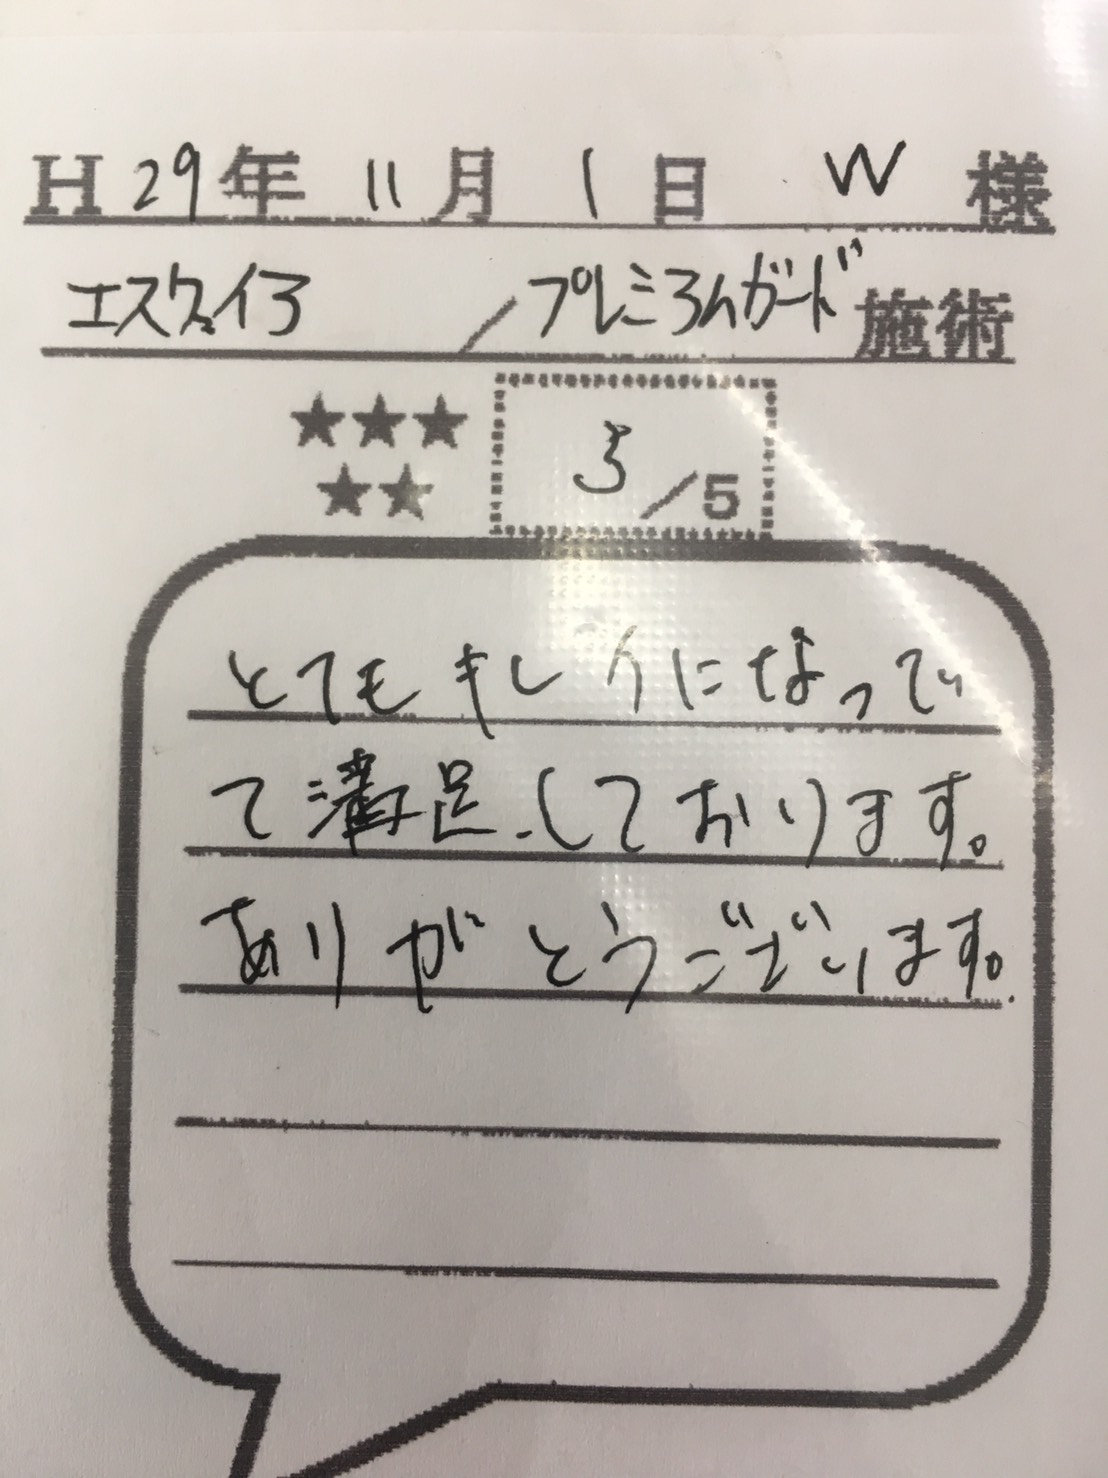 H 29年 11月 1日 W 様
エスクァイア / プレミアムガード 施術
★★★
★★ 5/5
とてもキレイになってい
て満足しております。
ありがとうございます。